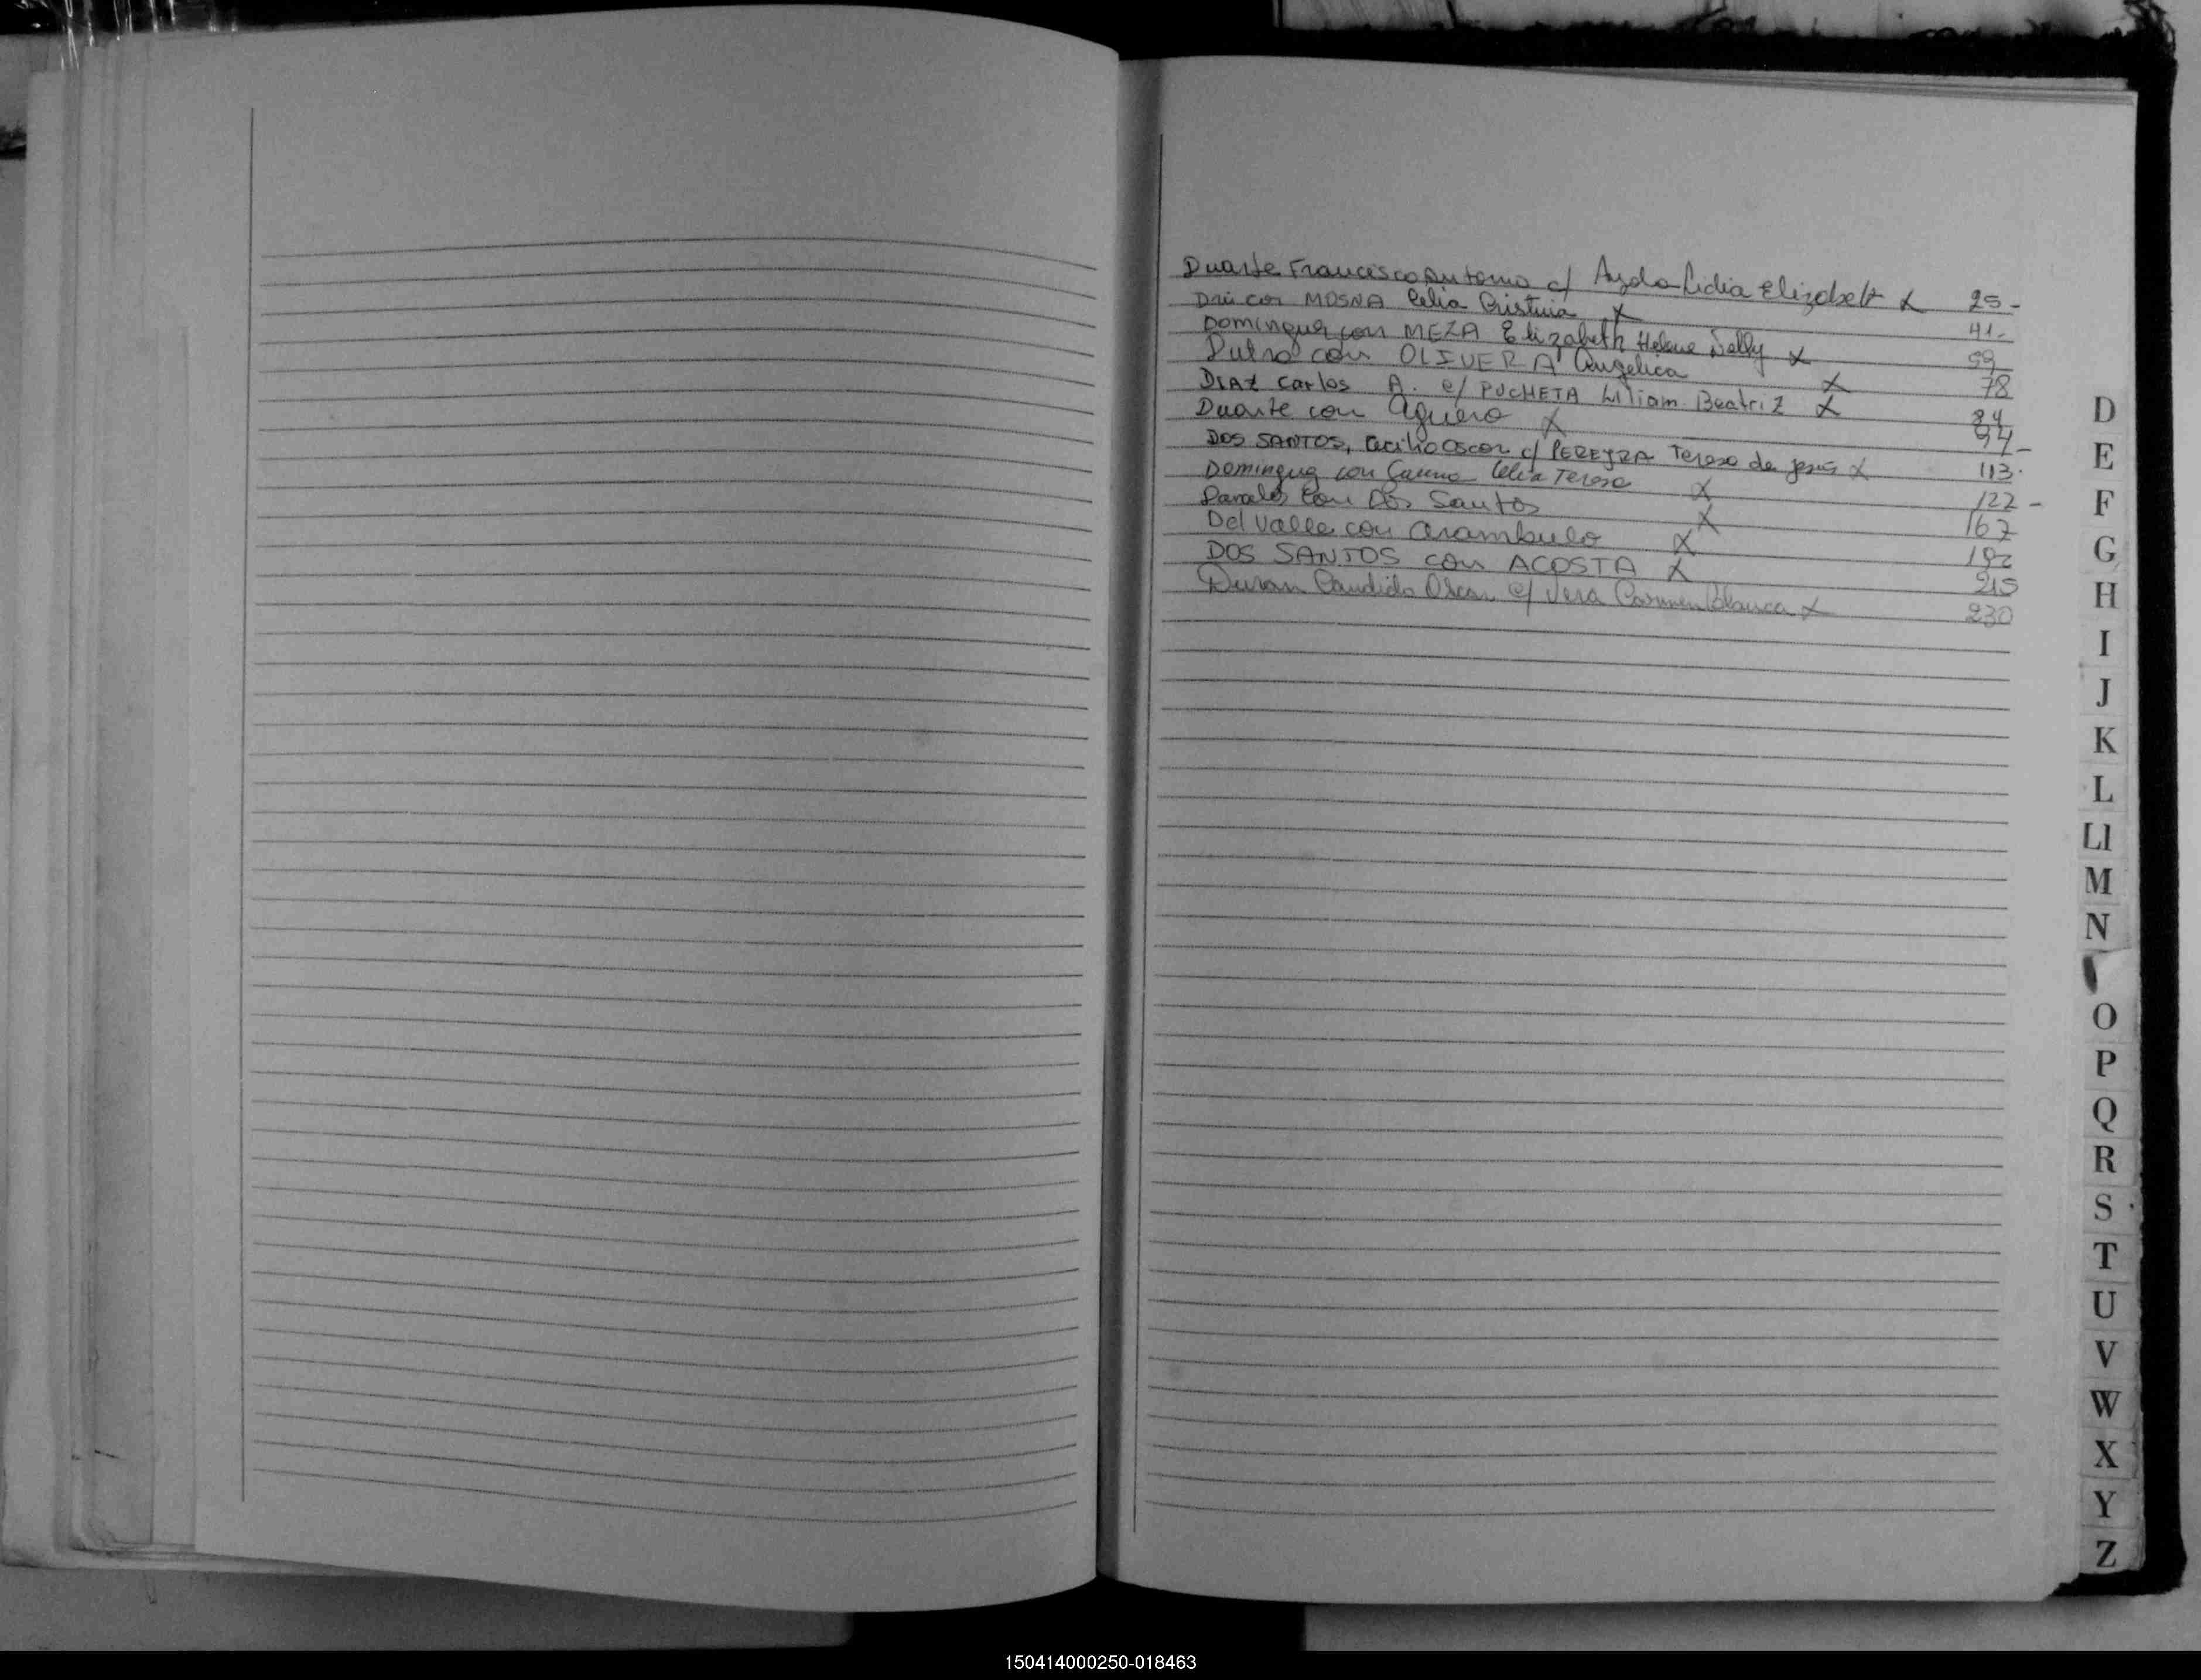 Duarte Francisco Antonio c/ Ayala Lidia Elizabett x 25-
con MOSNA Celia Cristina x 41-
Dominguez con MEZA Elizabeth Helena Nelly x 59
Dutra con OLIVERA Angelica x 78
DIAZ Carlos A. c/ PUCHETA Liliam Beatriz x 84
Duarte con Aguero x 94-
DOS SANTOS, Cecilio Oscar c/ PEREYRA Teresa de Jesús x 113.
Dominguez con Celia Teresa x 122-
con Dos Santos x 167
Del Valle con Arambulo x 192
DOS SANTOS con ACOSTA x 215
Duran Candido Oscar c/ Vera Carmen Blanca x 230
D
E
F
G
H
I
J
K
L
Ll
M
N
O
P
Q
R
S
T
U
V
W
X
Y
Z
150414000250-018463